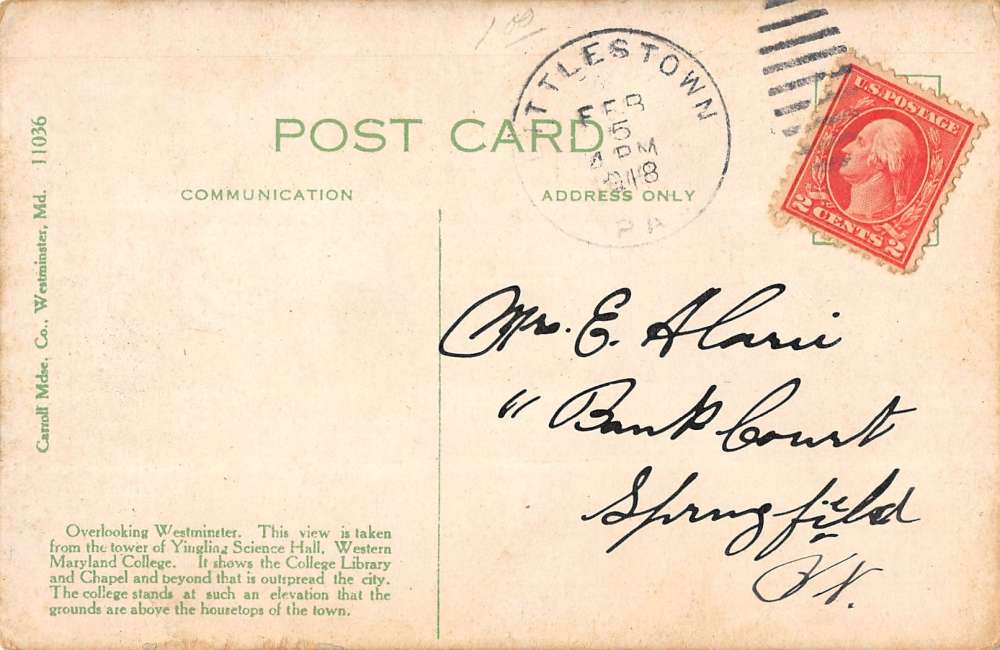 1 00
LITTLESTOWN
FEB
5
4 PM
1918
PA
U.S. POSTAGE
2 CENTS 2
POST CARD
COMMUNICATION
ADDRESS ONLY
Carroll Mdse. Co., Westminster, Md. 11036
Mrs. E. Alarie
" Bank Court
Springfield
Vt.
Overlooking Westminster. This view is taken
from the tower of Yingling Science Hall, Western
Maryland College. It shows the College Library
and Chapel and beyond that is outspread the city.
The college stands at such an elevation that the
grounds are above the housetops of the town.